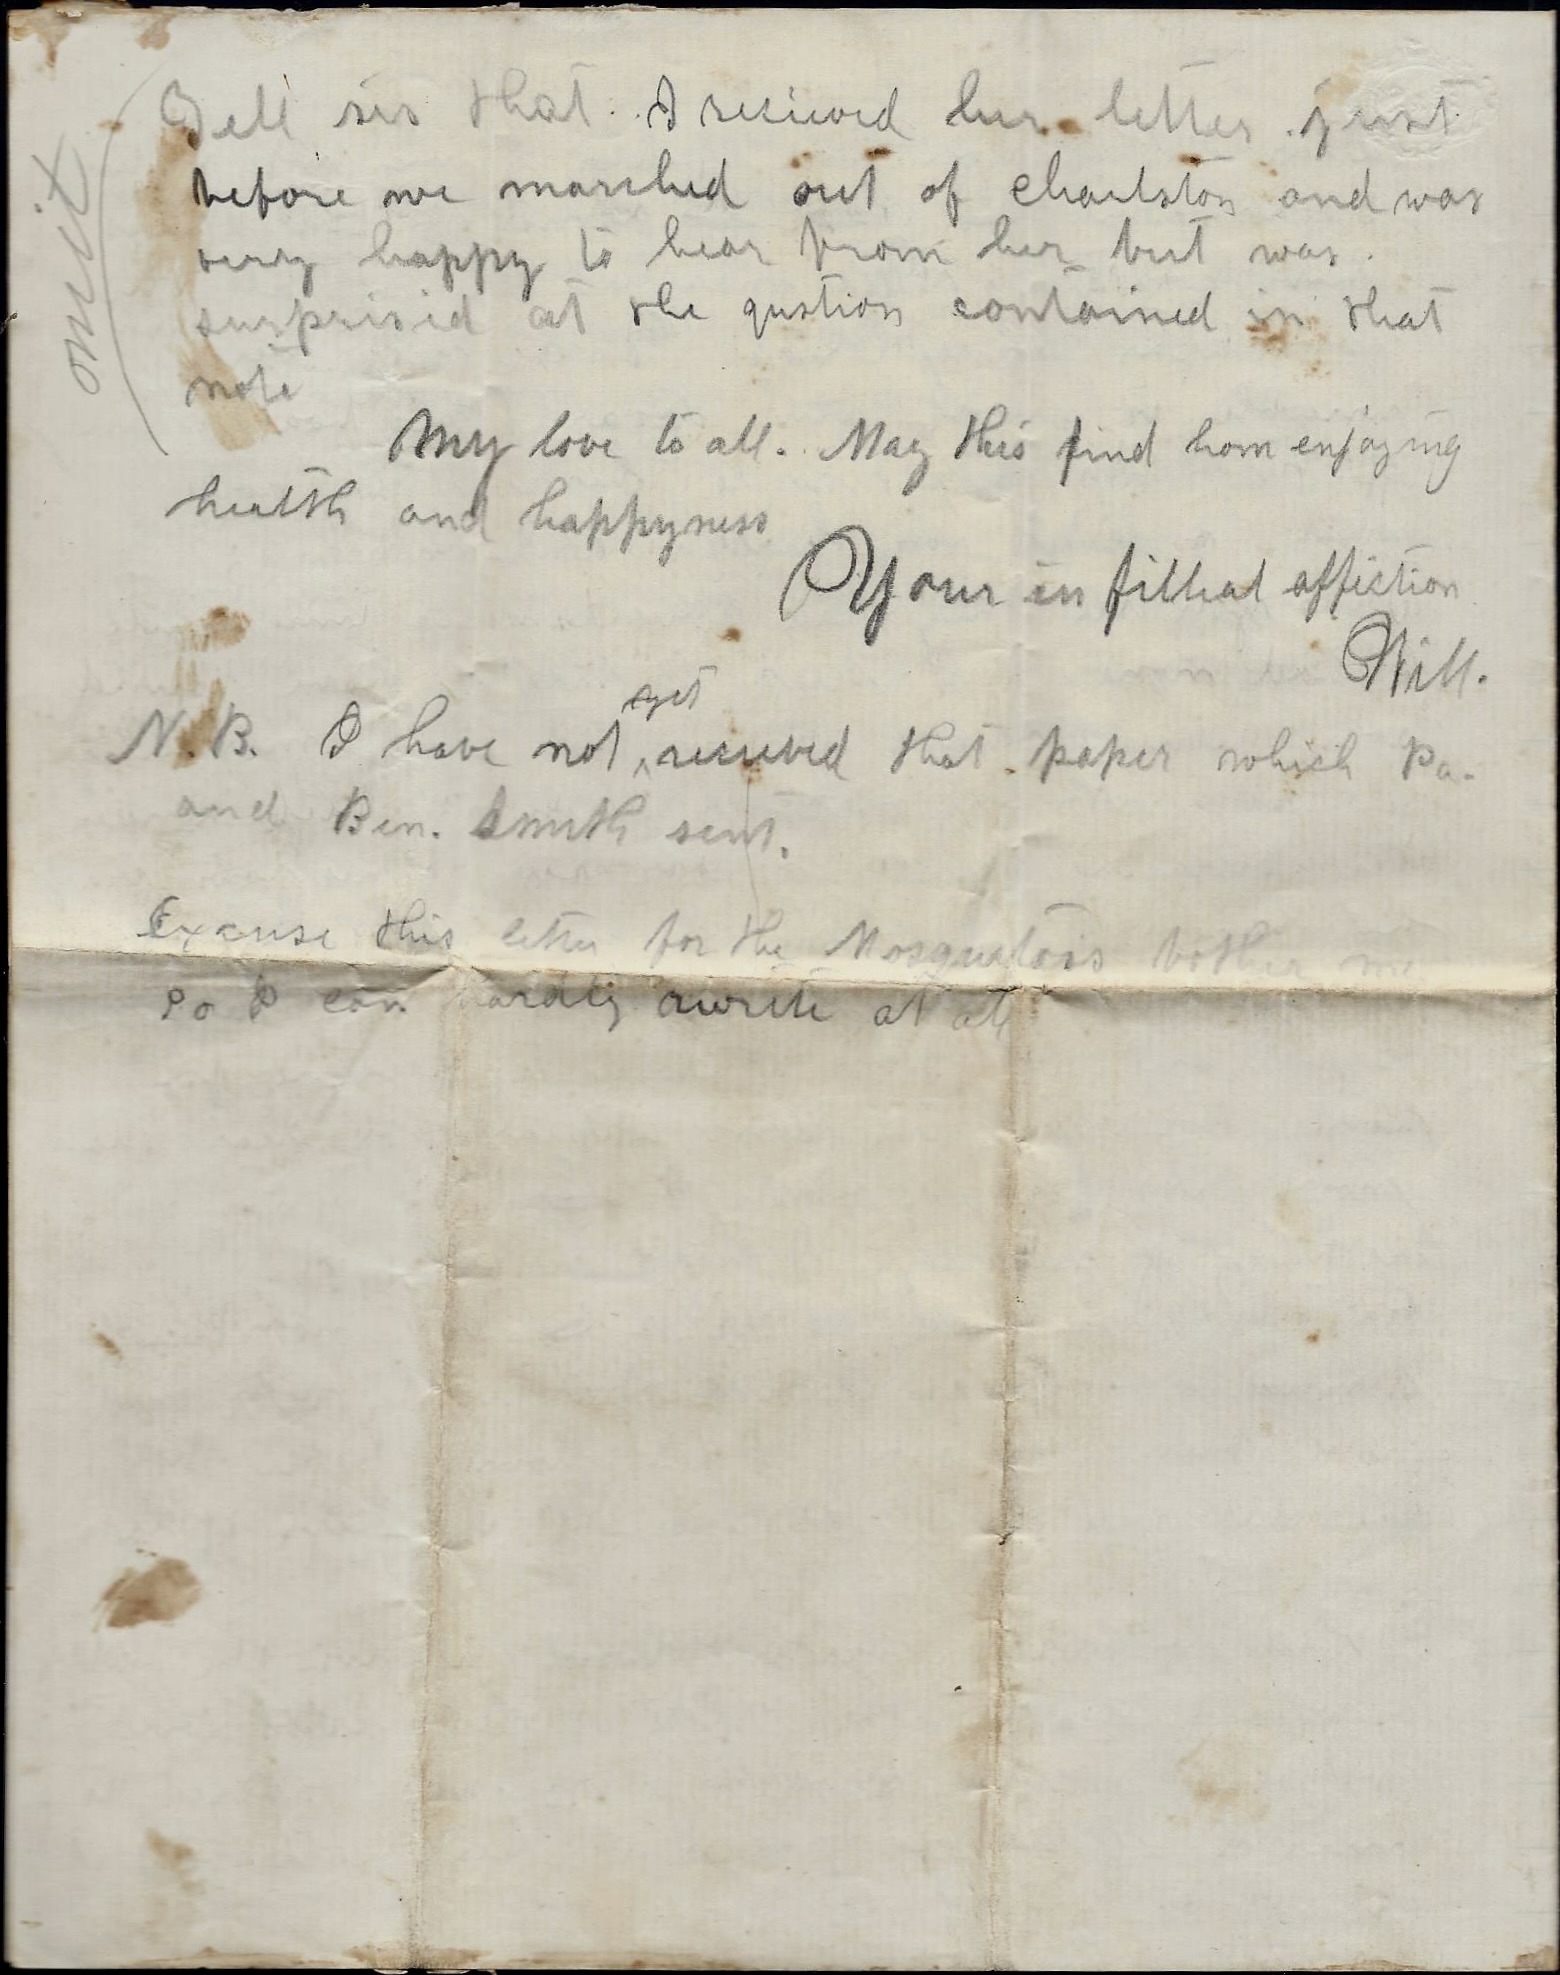 omit
Tell sis that I recieved her letter just
before we marched out of charlston and was
very happy to hear from her but was
surprisid at the qustion contained in that
note
My love to all. May this find hom enjoying
health and happyness
Your in fillial affection
Will.
yet
N.B. I have not ^ recieved that paper which Pa.
and Ben. Smith sent.
Excuse this letter for the Mosquetois bother me
so I can hardly write at all